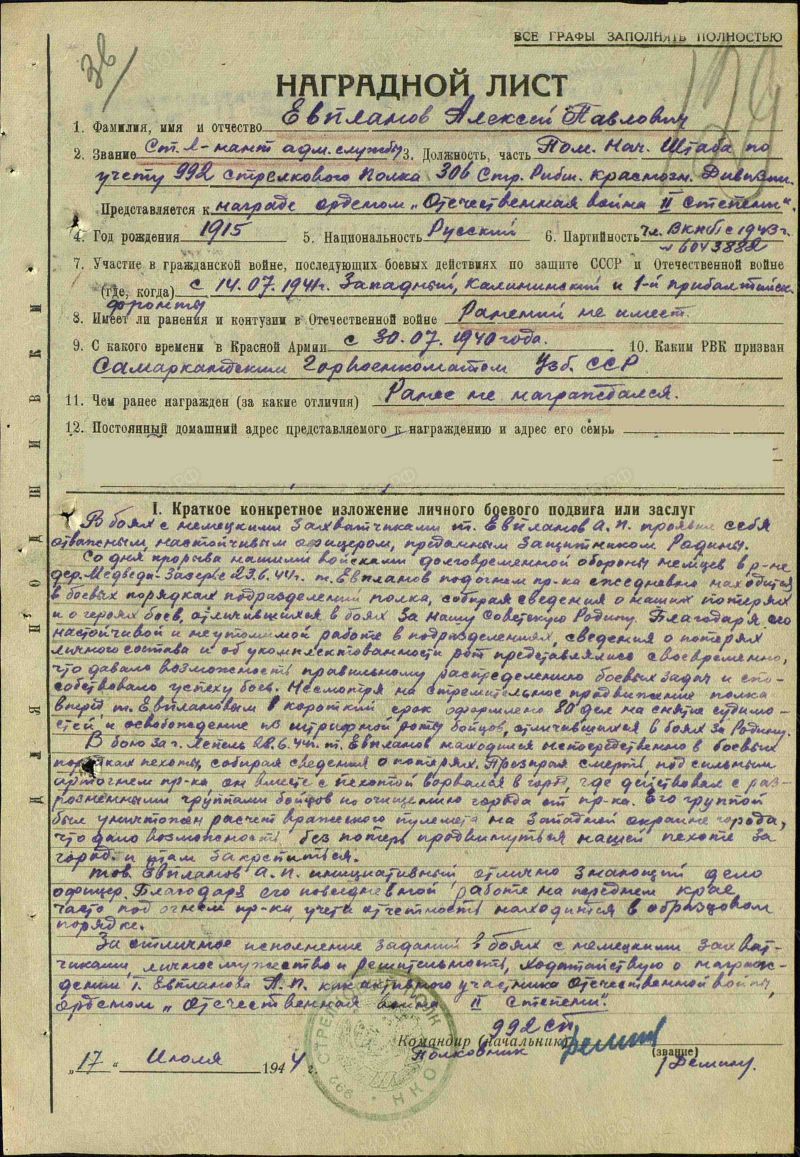 ВСЕ ГРАФЫ ЗАПОЛНЯТЬ ПОЛНОСТЬЮ
36/
129
НАГРАДНОЙ ЛИСТ
1. Фамилия, имя и отчество Евпланов Алексей Павлович
2. Звание Ст. л-нант адм. службы 3. Должность, часть Пом. Нач. Штаба по
учету 992 стрелкового полка 306 Стр. Рибш. Краснозн. Дивизии.
Представляется к награде орденом „Отечественная война II степени".
4. Год рождения 1915 5. Национальность Русский 6. Партийность Чл. ВКП/б с 1943 г.
№ 6043882
7. Участие в гражданской войне, последующих боевых действиях по защите СССР и Отечественной войне
(где, когда) с 14.07.1941г. Западный, Калининский и 1-й прибалтийск.
фронты
8. Имеет ли ранения и контузии в Отечественной войне Ранений не имеет.
9. С какого времени в Красной Армии с 30.07.1940 года. 10. Каким РВК призван
Самаркандским Горвоенкоматом Узб. ССР
11. Чем ранее награжден (за какие отличия) Ранее не награждался.
12. Постоянный домашний адрес представляемого к награждению и адрес его семьи
ДЛЯ ПОДШИВКИ
I. Краткое конкретное изложение личного боевого подвига или заслуг
В боях с немецкими захватчиками т. Евпланов А.П. проявил себя
отважным, настойчивым офицером, преданным защитником Родины.
Со дня прорыва нашими войсками долговременной обороны немцев в р-не
дер. Медведи-Заверье 23.6.44г. т. Евпланов под огнем пр-ка ежедневно находится
в боевых порядках подразделений полка, собирая сведения о наших потерях
и о героях боев, отличившихся в боях за нашу Советскую Родину. Благодаря его
настойчивой и неутомимой работе в подразделениях, сведения о потерях
личного состава и об укомплектованности рот представлялись своевременно,
что давало возможность правильному распределению боевых задач и спо-
собствовало успеху боев. Несмотря на стремительное продвижение полка
вперед т. Евплановым в короткий срок оформлено 80 дел на снятие судимо-
стей и освобождение из штрафной роты бойцов, отличившихся в боях за Родину.
В бою за г. Лепель 28.6.44г. т. Евпланов находился непосредственно в боевых
порядках пехоты, собирая сведения о потерях. Презирая смерть, под сильным
артогнем пр-ка он вместе с пехотой ворвался в город, где действовал с раз-
розненными группами бойцов по очищению города от пр-ка. Его группой
был уничтожен расчет вражеского пулемета на западной окраине города,
что дало возможность без потерь продвинуться нашей пехоте за
город и там закрепиться.
тов. Евпланов А.П. инициативный отлично знающий дело
офицер. Благодаря его повседневной работе на переднем крае,
часто под огнем пр-ка учет и отчетность находится в образцовом
порядке.
За отличное исполнение заданий в боях с немецкими захват-
чиками, личное мужество и решительность, ходатайствую о награж-
дении т. Евпланова А.П. как активного участника Отечественной войны,
орденом „Отечественная война II степени".
992 сп
Командир (начальник)
Полковник Демин
(звание)
/Демин/.
„17" Июля 1944 г.